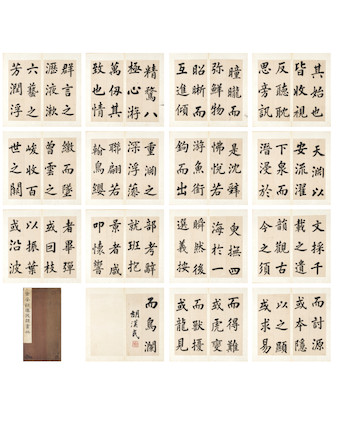 其始也
皆收視
反聽耽
思旁訊
精驁八
極心游
萬仞其
致也情
曈曨而
弥鮮物
昭晰而
互進傾
群言之
瀝液漱
六藝之
芳潤浮
天淵以
安流濯
下泉而
潛浸於
是沈辭
怫悅若
游魚銜
鉤而出
重淵之
深浮藻
聯翩若
翰鳥纓
繳而墜
曾雲之
峻收百
世之闕
文採千
載之遺
韻觀古
今之須
臾撫四
海於一
瞬然後
選義按
部考辭
就班抱
景者咸
叩懷響
者畢彈
或因枝
以振葉
或沿波
而討源
或本隱
以之顯
或求易
而得難
或虎變
而獸擾
或龍見
而鳥瀾
胡漢民